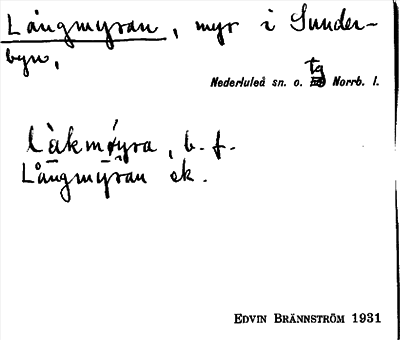 Långmyran, myr i Sunder-
byn,
Nederluleå sn. o. tg Norrb. l.
làkmøyra, b. f.
Långmyran ek.
EDVIN BRÄNNSTRÖM 1931